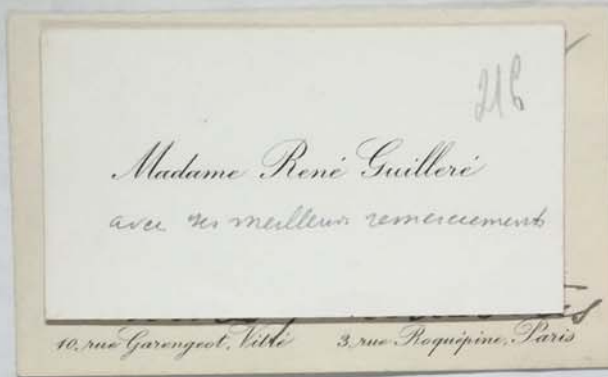 216
Madame René Guilleré
avec ses meilleurs remerciements
10, rue Garengeot, Vitré 3, rue Roquépine, Paris